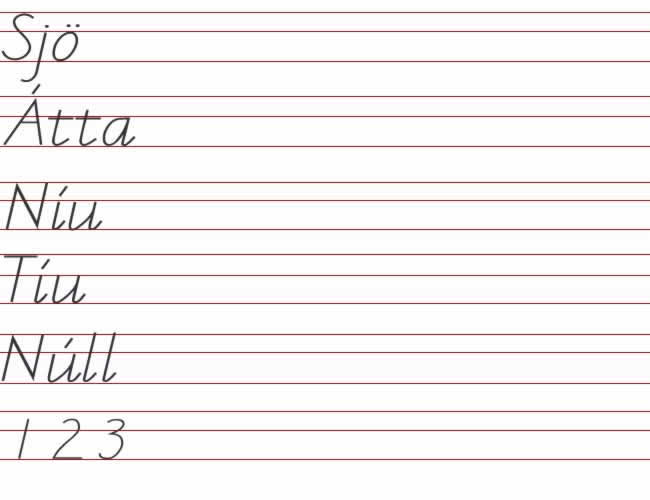 Sjö
Átta
Níu
Tíu
Núll
1 2 3